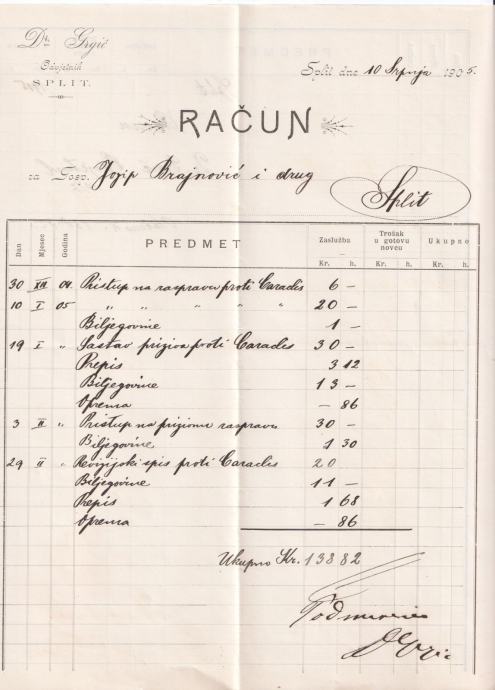 Dr. Grgić
Odvjetnik
SPLIT.
Split dne 10 Srpnja 1905.
RAČUN
za Gosp. Josip Brajnović i drug
Split
Dan Mjesec Godina PREDMET Zaslužba Trošak u gotovu novcu Ukupno
Kr. h. Kr. h. Kr. h.
30 XII 04. Pristup na raspravu proti Caradis 6 —
10 I 05 " " " " " 20 —
Biljegovine 1 —
19 I " Sastav priziva proti Caradis 30 —
Prepis 3 12
Biljegovine 13 —
Oprema — 86
3 II " Pristup na prizivnu raspravu 30 —
Biljegovine 1 30
29 II " Revizijski spis proti Caradis 20
Biljegovine 11 —
Prepis 1 68
Oprema — 86
Ukupno Kr. 138 82